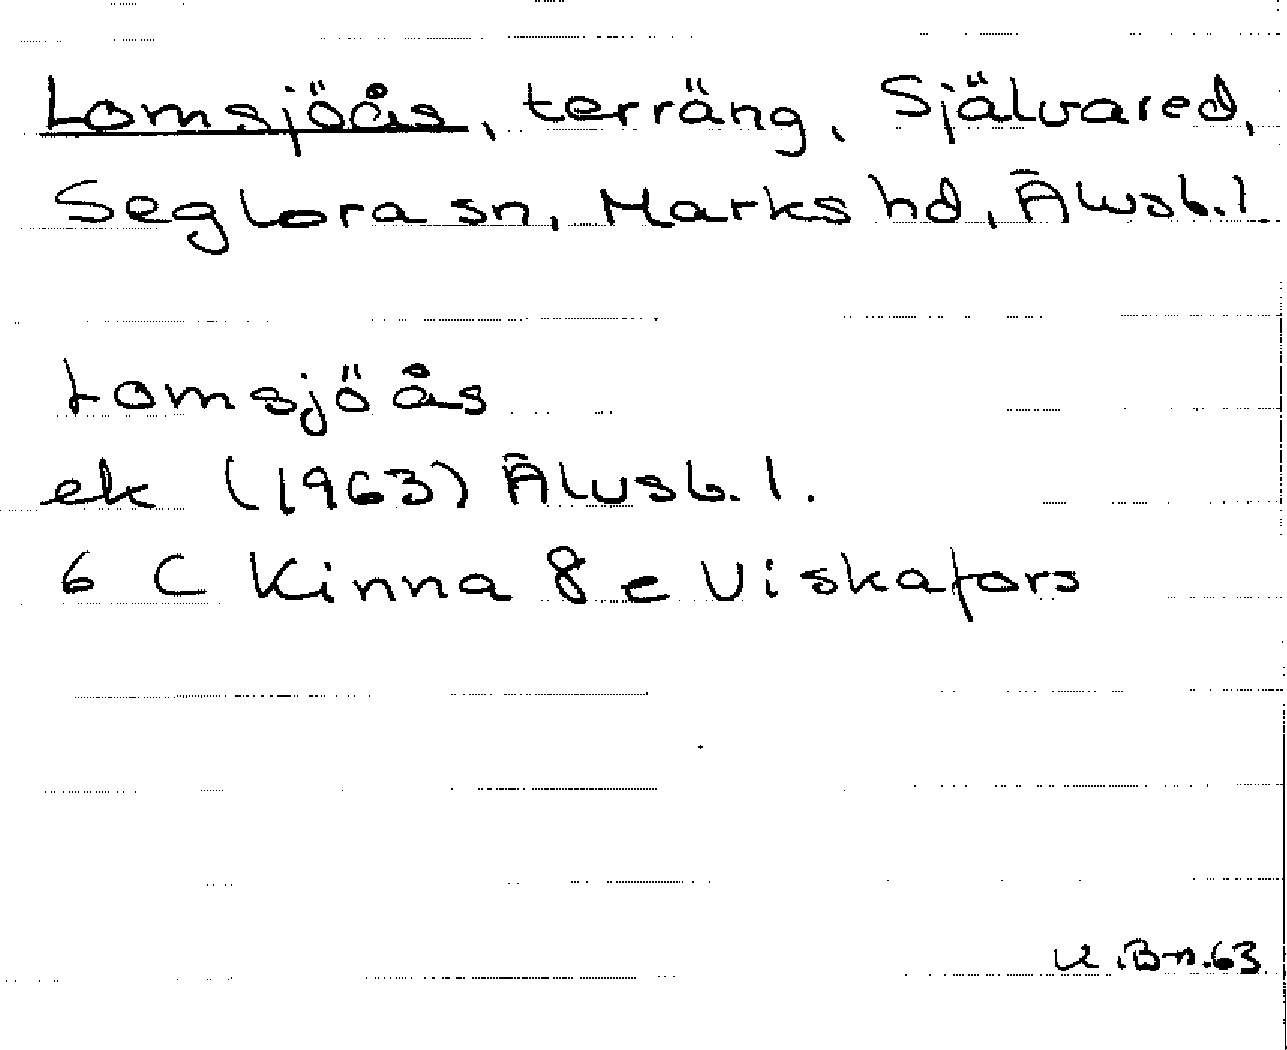 Lomsjöås, terräng, Självared,
Seglora sn, Marks hd, Älvsb. l.
Lomsjöås
ek (1963) Älvsb. l.
6 C Kinna 8 e Viskafors
K. Bn. 63